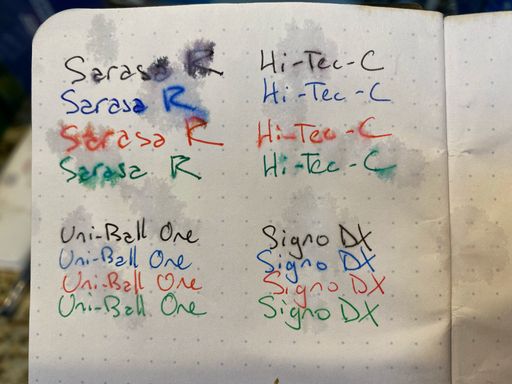 Sarasa R
Sarasa R
Sarasa R
Sarasa R
Hi-Tec-C
Hi-Tec-C
Hi-Tec-C
Hi-Tec-C
Uni-Ball One
Uni-Ball One
Uni-Ball One
Uni-Ball One
Signo DX
Signo DX
Signo DX
Signo DX